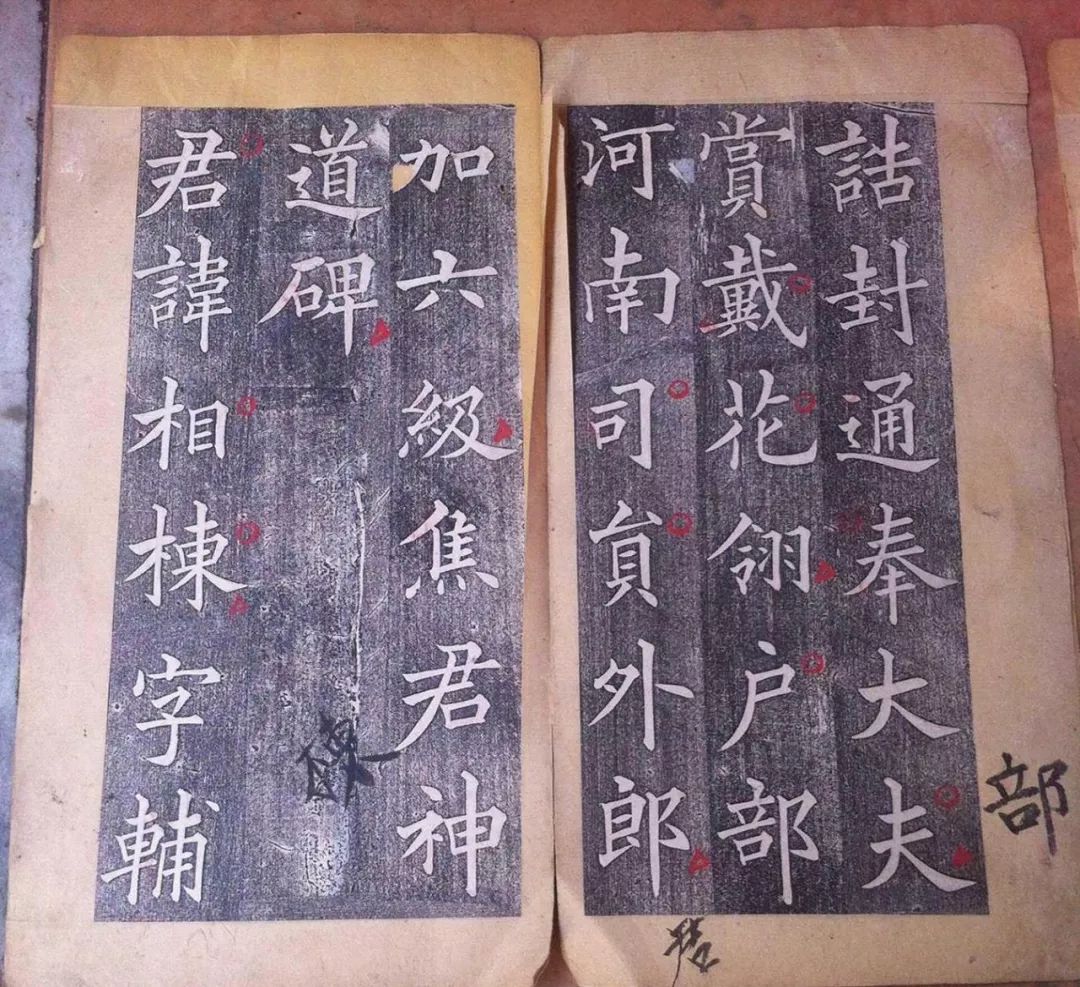 誥封通奉大夫
賞戴花翎户部
河南司貟外郎
加六級焦君神
道碑
君諱相棟字輔
部